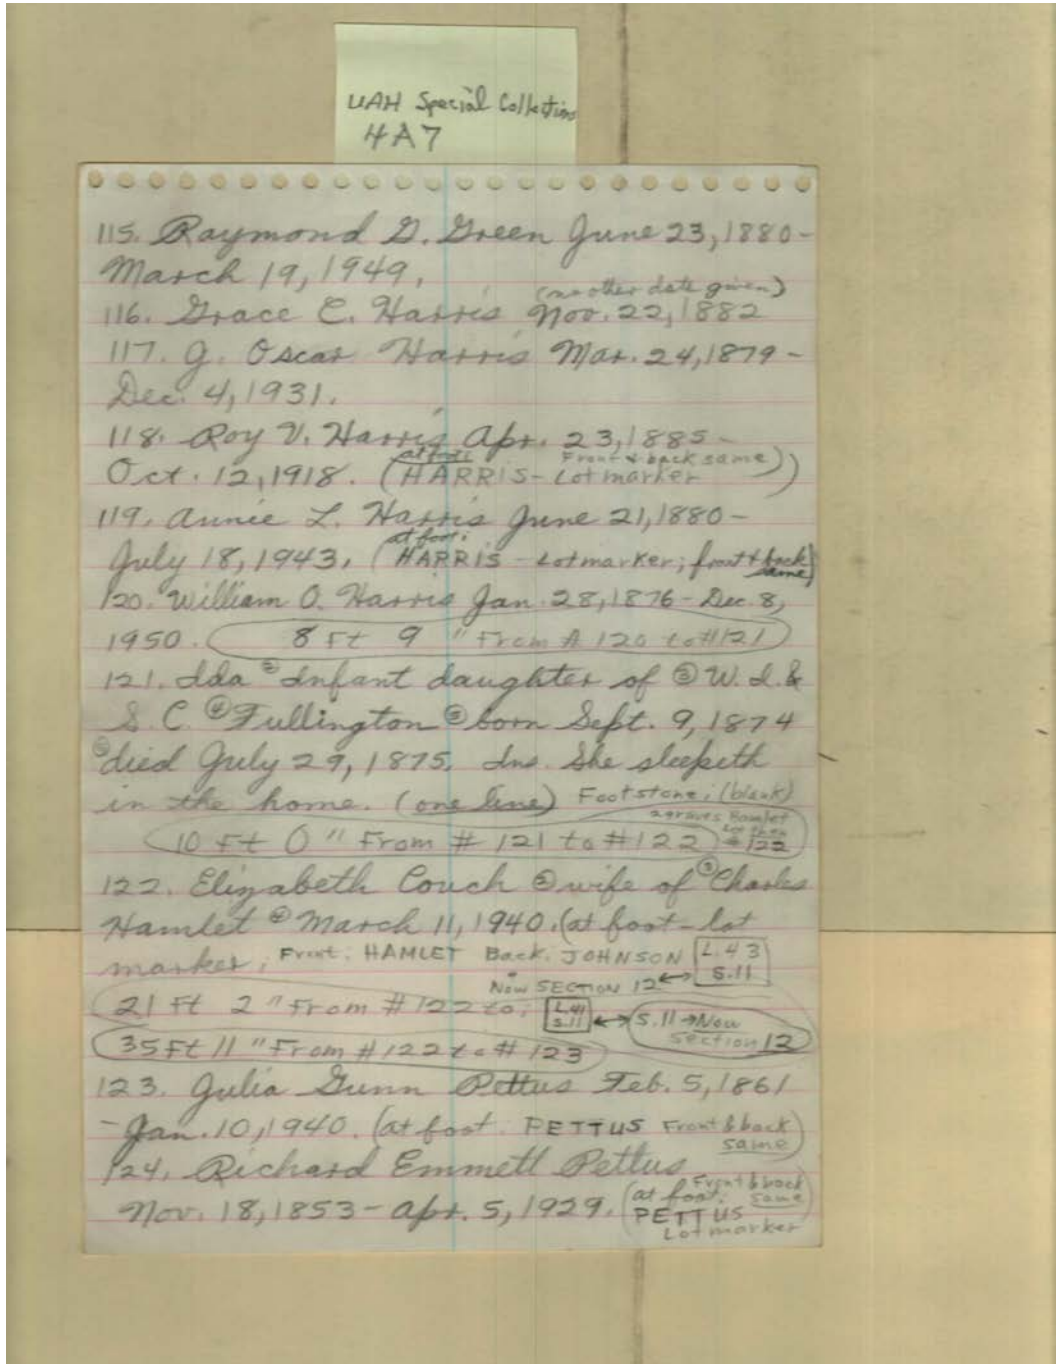 UAH Special Collections
4A7
115. Raymond G. Green June 23, 1880-
March 19, 1949.
(no other date given)
116. Grace C. Harris Nov. 22, 1882
117. J. Oscar Harris Mar. 24, 1879-
Dec. 4, 1931.
118. Roy V. Harris Apr. 23, 1885-
Oct. 12, 1918. (at foot: HARRIS- Lot marker Front & back same)
119. Annie L. Harris June 21, 1880-
July 18, 1943. (at foot: HARRIS - Lot marker; front & back same)
120. William O. Harris Jan. 28, 1876- Dec. 8,
1950. 8 Ft 9 " From # 120 to #121
121. Ida ② Infant daughter of ③ W. I. &
S. C. ④ Fullington ⑤ born Sept. 9, 1874
⑥ died July 29, 1875. Ins. She sleepeth
in the home. (one line) Footstone: (blank)
10 Ft 0 " From # 121 to #122 Hamlet #122
122. Elizabeth Couch ② wife of ③ Charles
Hamlet ④ March 11, 1940. (at foot - lot
marker; Front: HAMLET Back: JOHNSON L. 43 S. 11
Now SECTION 12
21 Ft 2 " From # 122 to: L. 41 S. 11 S. 11 → Now Section 12
35 Ft 11 " From # 122 to # 123
123. Julia Gunn Pettus Feb. 5, 1861
- Jan. 10, 1940. (at foot. PETTUS Front & back same)
124. Richard Emmett Pettus
Nov. 18, 1853 - Apr. 5, 1929. (at foot: Front & back same PETTUS Lot marker